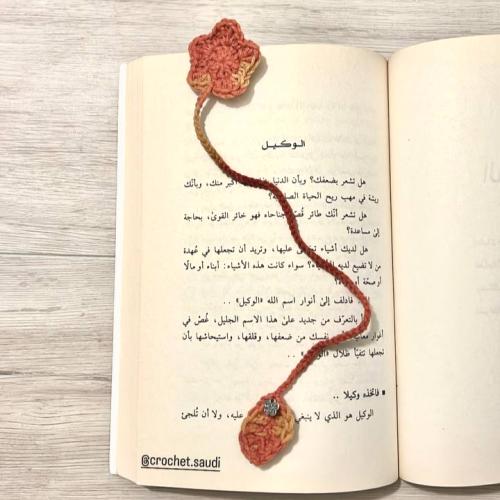 الوكيل
هل تشعر بضعفك؟ وبأن الدنيا أكبر منك، وبأنّك
ريشة في مهب ريح الحياة
هل تشعر أنّك طائر قُصّ جناحاه فهو خائر القوىٰ، بحاجة
إلىٰ مساعدة؟
هل لديك أشياء عليها، وتريد أن تجعلها في عُهدة
من لا تضيع لديه سواء كانت هذه الأشياء: أبناء أو مالًا
أو صحّة أو
فادلف إلىٰ أنوار اسم الله «الوكيل» ..
بالتعرّف من جديد علىٰ هذا الاسم الجليل، غُصْ في
أنوار نفسك من ضعفها، وقلقها، واستيحاشها بأن
تجعلها تتفيّأ ظلال «الوكيل» ..
▪ فاتخذه وكيلا ..
الوكيل هو الذي لا ينبغي عليه، ولا أن تُلجئ
@crochet.saudi